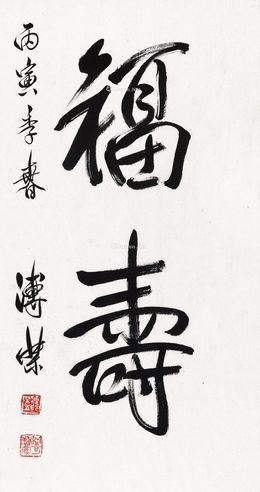 福壽
丙寅季春
溥傑